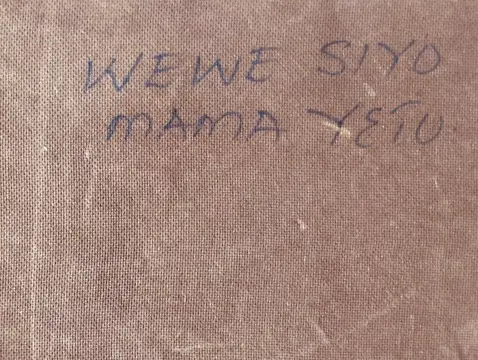 WEWE SIYO
MAMA YETU.